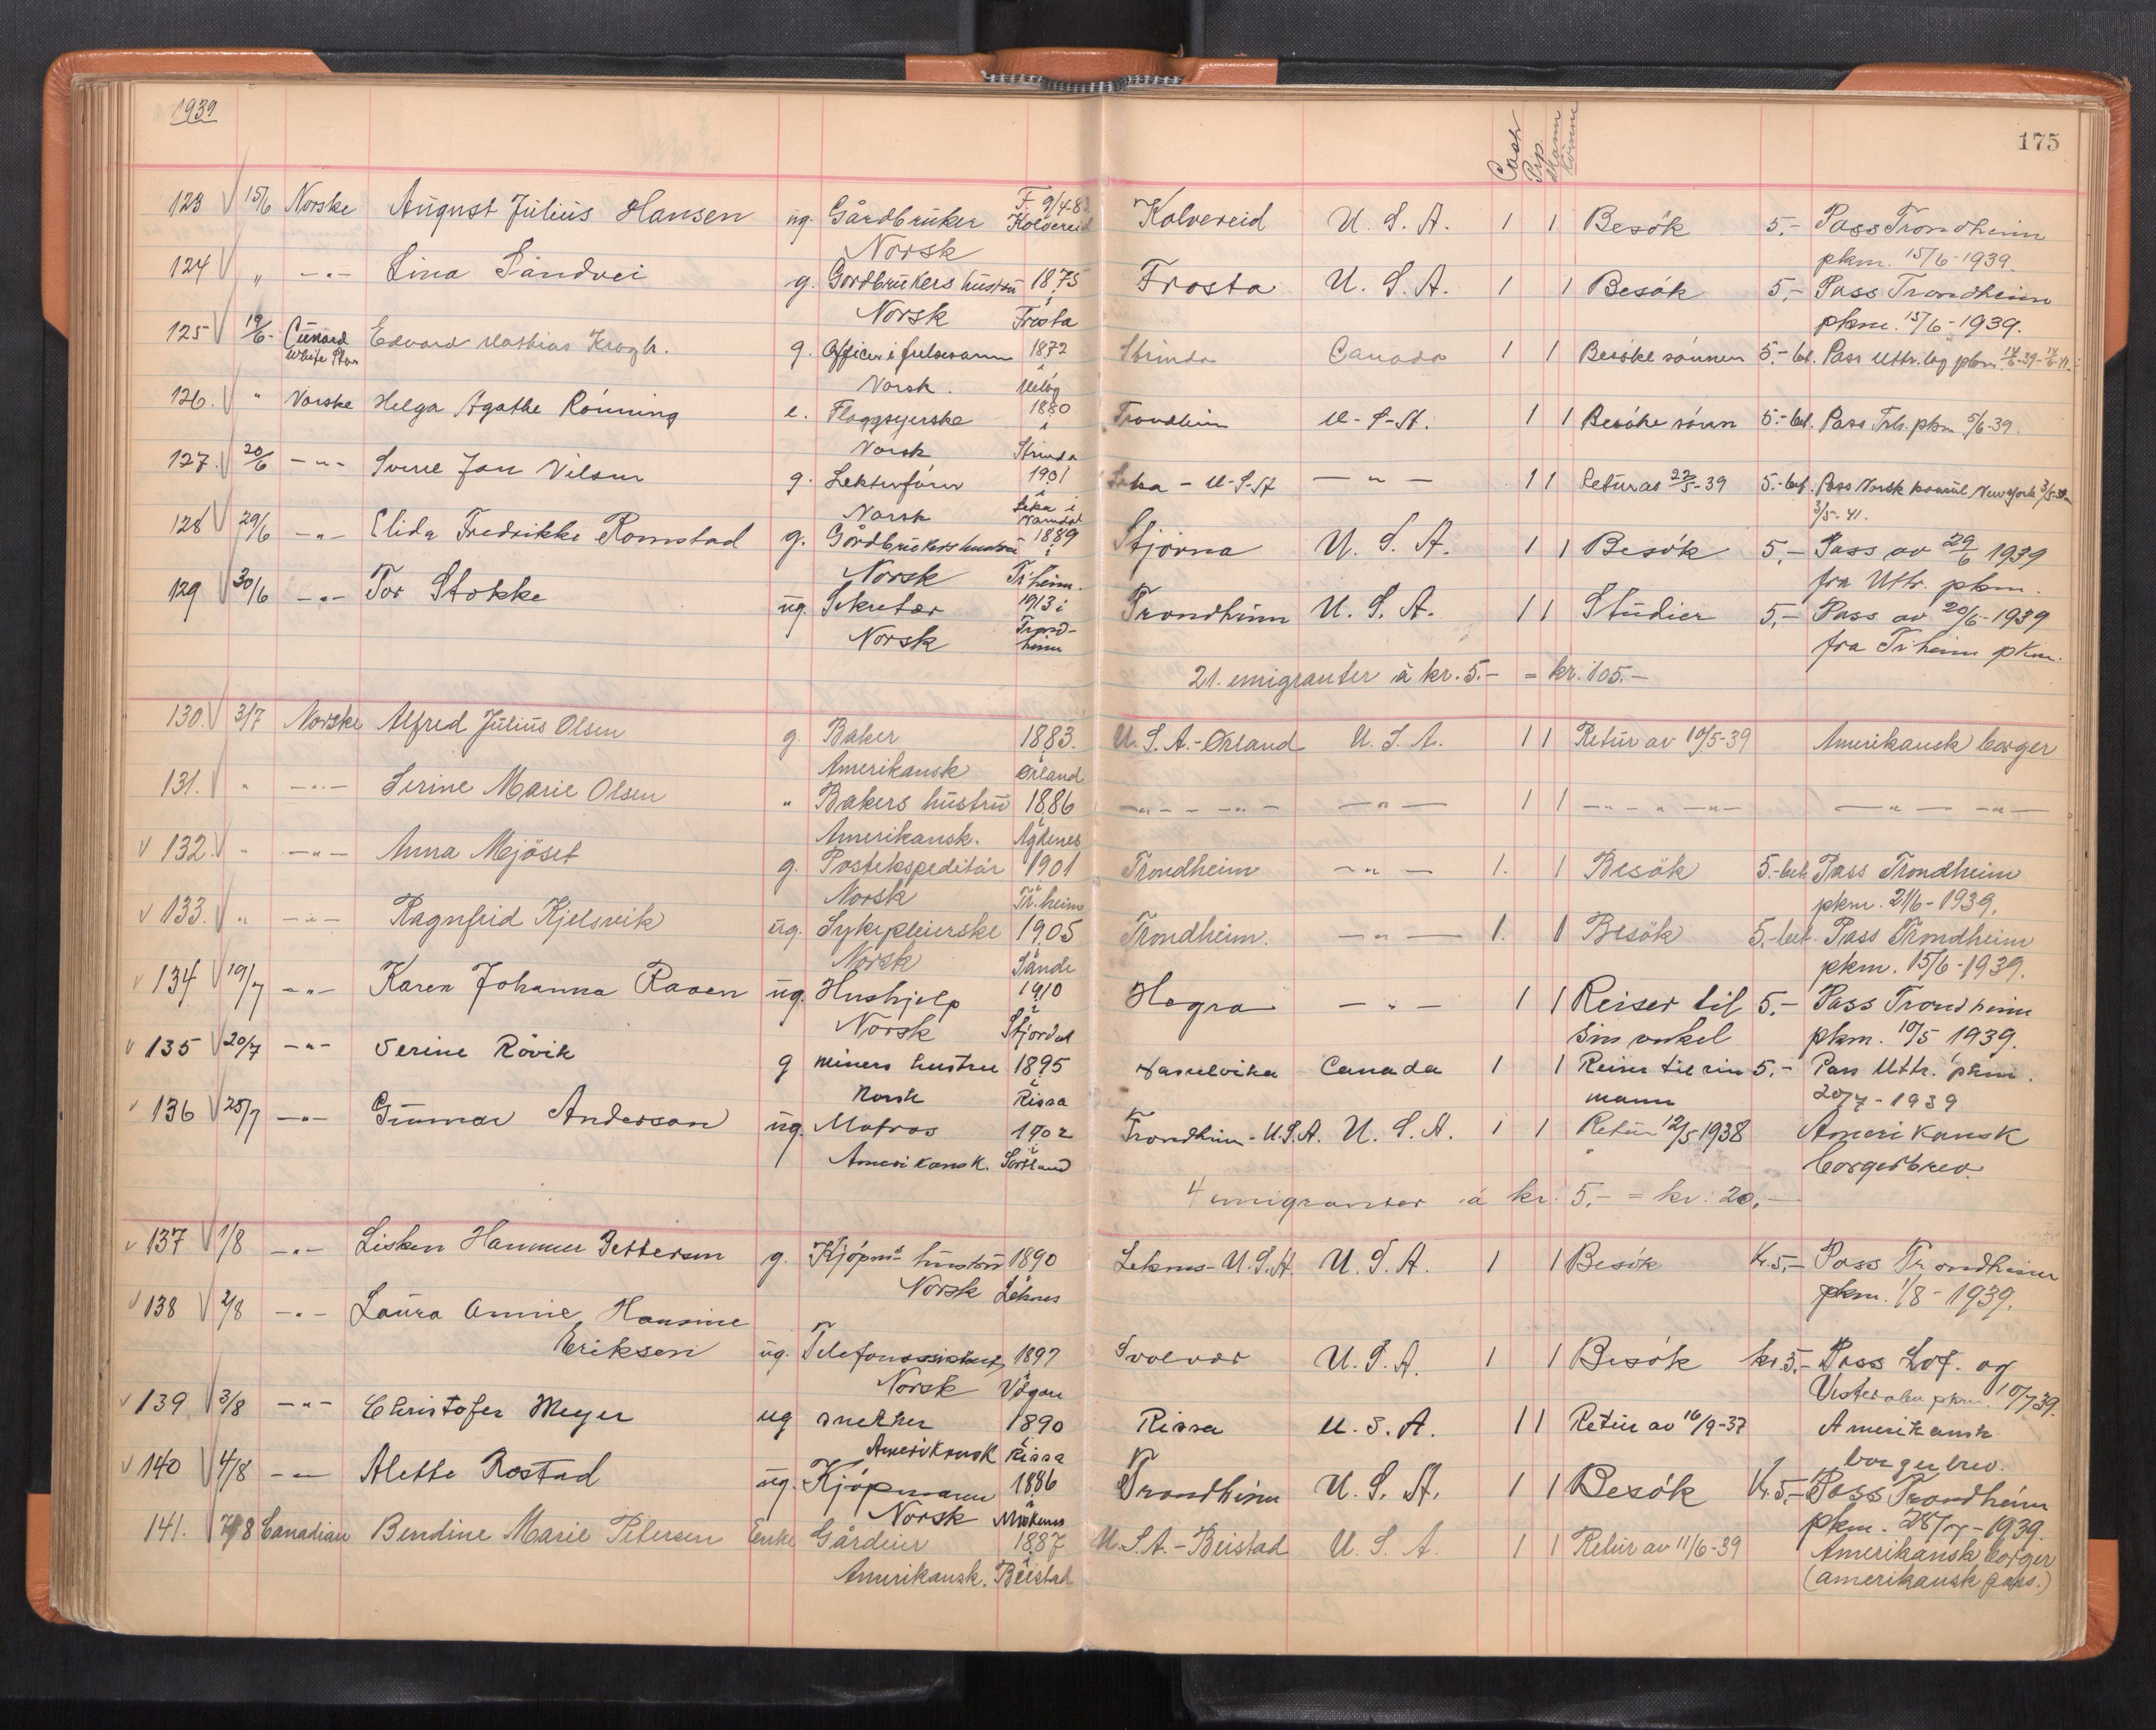 1939
175
Cash Prp. Mann Kvinne
123 15/6 Norske August Julius Hansen ug. Gårdbruker F. 9/4-8 Kolvereid Kolvereid U.S.A. 1 1 Besök 5,- Pass Trondheim
Norsk pkm. 15/6-1939.
124 " -"- Lina Sandvei g. Gordbrukers hustru 1875 Frosta U.S.A. 1 1 Besök 5,- Pass Trondheim
Norsk i Frosta pkm. 15/6-1939.
125 19/6- Cunard White Star Edvard Mathias Krogh. g. Officer i frelsesarm 1872 Strinda Canada 1 1 Besöke sönnen 5.- bet. Pass Uttr.lag pkm
Norsk. i
126. " Norske Helga Agathe Rönning e. Flaggsyerske 1880 Trondheim U-S-A. 1 1 Besöke sönn 5.- bet. Pass Trh. pkm 5/6-39.
Norsk i Strinda
127. 20/6 -"- Sverre Jan Nilsen g. Lektorförer 1901 Leka - U-S-A -"- 1 1 Retur as 22/5-39 5.- bet. Pass Norsk konsul New York 3/5-39
Norsk i Leka i Namdal 3/5-41.
128 29/6 -"- Elida Fredrikke Romstad g. Gårdbrukers hustru 1889 Stjörna U.S.A. 1 1 Besök 5,- Pass av 29/6 1939
Norsk i Tr.heim. fra Uttr. pkm.
129 30/6 -"- Tor Stokke ug. Sekretær 1913 i Trondheim U.S.A. 1 1 Studier 5,- Pass av 20/6-1939
Norsk Trondheim fra Tr.heim pkm.
21. emigranter à kr. 5.- = kr. 105.-
130. 3/7 Norske Alfred Julius Olsen g. Baker 1883. U.S.A.-Örland U.S.A. 1 1 Retur av 10/5-39 Amerikansk borger
Amerikansk Örland
131. " -"- Serine Marie Olsen " Bakers hustru 1886 -"- -"- -"- 1 1 -"- " -"- -"- -"-
Amerikansk. i Agdenes
132. " -"- Anna Mjöset g. Postekspeditör 1901 Trondheim -"- 1. 1 Besök 5.-bet. Pass Trondheim
Norsk i Tr.heim pkm. 21/6-1939.
133. " -"- Ragnfrid Kjelsvik ug. Sykepleierske 1905 Trondheim. -"- 1. 1 Besök 5.-bet. Pass Trondheim
Norsk i Sande pkm. 15/6-1939.
134 19/7 -"- Karen Johanna Raaen ug. Hushjelp 1910 Hegra -"- 1 1 Reiser til 5.- Pass Trondheim
Norsk i Stjördal sin onkel pkm. 10/5 1939.
135 20/7 -"- Serine Rövik g miners hustru 1895 Hasselvika Canada 1 1 Reiser til sin 5.- Pass Uttr. pkm.
Norsk i Rissa mann 20/7-1939
136 25/7 -"- Gunnar Anderson ug. Matros 1902 Trondheim-U.S.A. U.S.A. 1 1 Retur 12/5 1938 Amerikansk
Amerikansk. i Sortland borgerbrev.
4 emigranter à kr. 5.- = kr. 20,-
137 1/8 -"- Lisken Hammer Pettersen g. Kjöpm.s hustru 1890 Leknes-U.S.A. U.S.A. 1 1 Besök Kr.5,- Pass Trondheim
Norsk i Leknes pkm. 1/8-1939.
138 2/8 -"- Laura Annie Hansine
Eriksen ug. Telefonassistent 1897 Svolvær U.S.A. 1 1 Besök kr.5,- Pass Lof. og
Norsk i Vågan Vesterålen pkm. 10/7 39.
139 3/8 -"- Christofer Meyer ug snekker 1890 Rissa U.S.A. 1 1 Retur av 16/9-37 Amerikansk
Amerikansk i Rissa borgerbrev.
140 4/8 -"- Alette Rostad ug. Kjöpmann 1886 Trondheim U.S.A. 1 1 Besök Kr.5,- Pass Trondheim
Norsk i pkm. 28/7-1939.
141. 7/8 Canadian Bendine Marie Petersen Enke Gårdeier 1887 U.S.A.-Beistad U.S.A. 1 1 Retur av 11/6-39 Amerikansk borger
Amerikansk. i Beistad (amerikansk pass.)